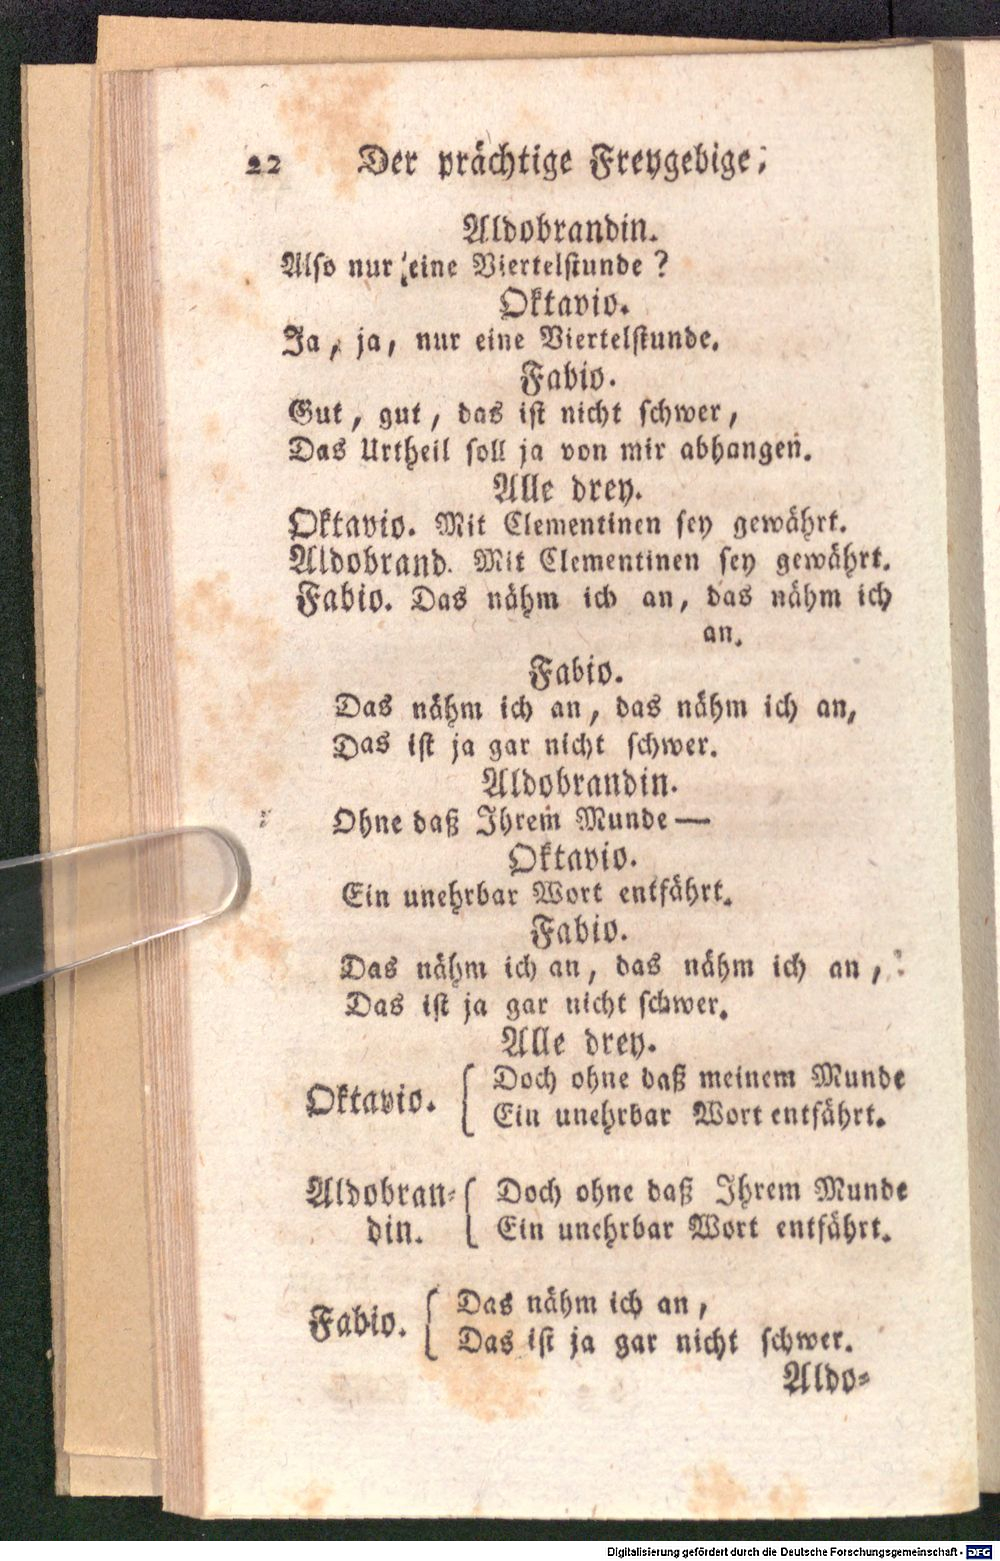 22 Der prächtige Freygebige;
Aldobrandin.
Also nur eine Viertelstunde?
Oktavio.
Ja, ja, nur eine Viertelstunde.
Fabio.
Gut, gut, das ist nicht schwer,
Das Urtheil soll ja von mir abhangen.
Alle drey.
Oktavio. Mit Clementinen sey gewährt.
Aldobrand. Mit Clementinen sey gewährt.
Fabio. Das nähm ich an, das nähm ich
an.
Fabio.
Das nähm ich an, das nähm ich an,
Das ist ja gar nicht schwer.
Aldobrandin.
Ohne daß Ihrem Munde —
Oktavio.
Ein unehrbar Wort entfährt.
Fabio.
Das nähm ich an, das nähm ich an,
Das ist ja gar nicht schwer.
Alle drey.
Oktavio. { Doch ohne daß meinem Munde
Ein unehrbar Wort entfährt.
Aldobran-
din. { Doch ohne daß Ihrem Munde
Ein unehrbar Wort entfährt.
Fabio. { Das nähm ich an,
Das ist ja gar nicht schwer.
Aldo-
Digitalisierung gefördert durch die Deutsche Forschungsgemeinschaft - DFG